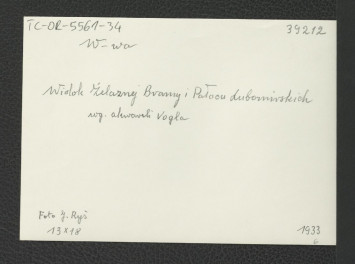 TC-OR-5561-34 39212
W-wa
Widok Żelaznej Bramy i Pałacu Lubomirskich
wg. akwareli Vogla
Foto J. Ryś
13x18 1933